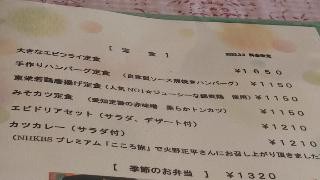 [ 定 食 ]
大きなエビフライ定食 ¥1650
手作りハンバーグ定食 (自家製ソース煮焼きハンバーグ) ¥1150
東栄若鶏唐揚げ定食 (人気NO1☆ジューシーな錦爽鶏 使用) ¥1150
みそカツ定食 (愛知定番の赤味噌 柔らかトンカツ) ¥1150
エビドリアセット (サラダ、デザート付) ¥1210
カツカレー (サラダ付) ¥1210
(NHKBSプレミアム「こころ旅」で火野正平さんにお召し上がり頂きました
[ 季節のお弁当 ] ¥1320